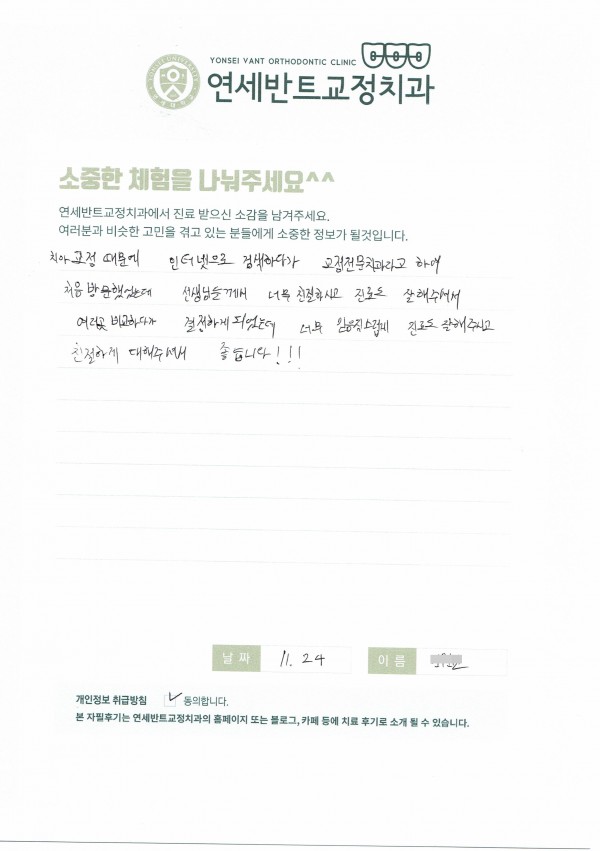 YONSEI VANT ORTHODONTIC CLINIC
연세반트교정치과
소중한 체험을 나눠주세요^^
연세반트교정치과에서 진료 받으신 소감을 남겨주세요.
여러분과 비슷한 고민을 겪고 있는 분들에게 소중한 정보가 될것입니다.
치아교정 때문에 인터넷으로 검색하다가 교정전문치과라고 하여
처음 방문했었는데 선생님들께서 너무 친절하시고 진료도 잘해주셔서
여러곳 비교하다가 결정하게 되었는데 너무 믿음직스럽게 진료도 잘해주시고
친절하게 대해주셔서 좋습니다!!!
날 짜 11. 24 이 름
개인정보 취급방침 동의합니다.
본 자필후기는 연세반트교정치과의 홈페이지 또는 블로그, 카페 등에 치료 후기로 소개 될 수 있습니다.